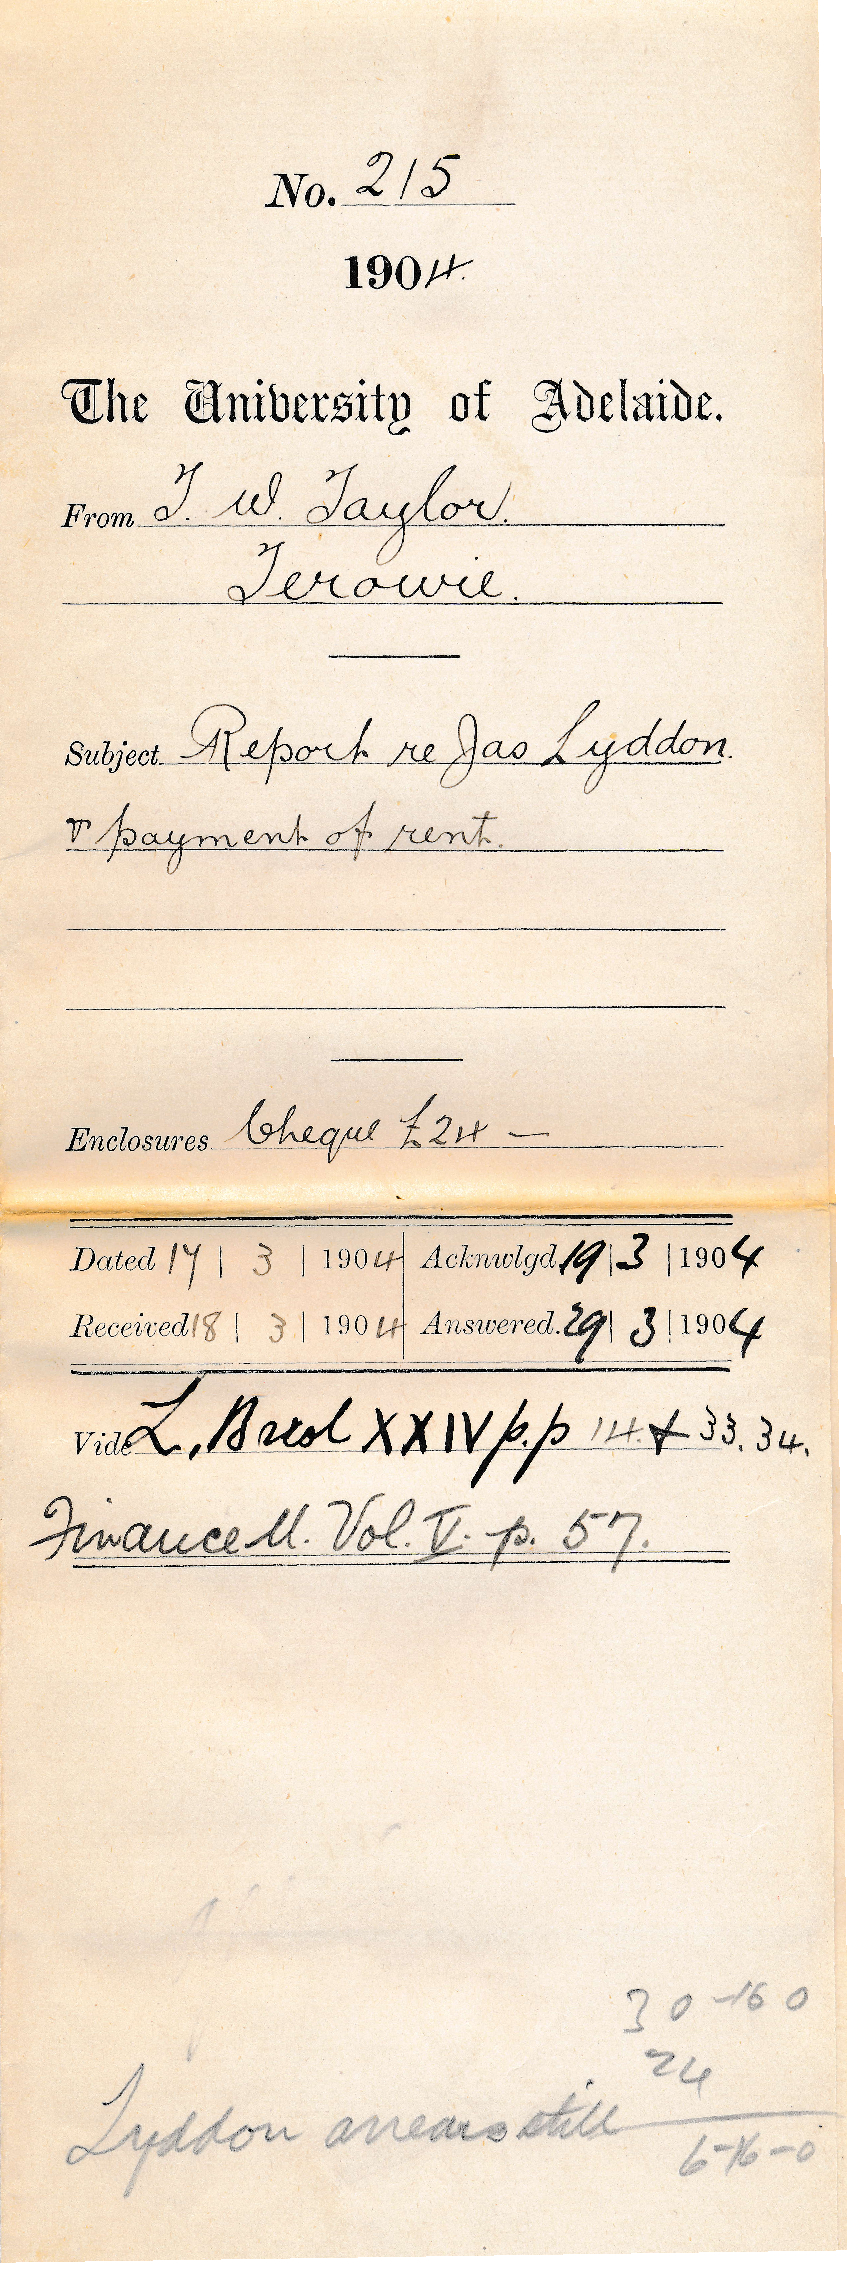 No. 215
1904
The University of Adelaide.
From T. W. Taylor.
Terowie.
Subject. Report re Jas Lyddon.
& payment of rent.
Enclosures Cheque £24 —
Dated 17 | 3 | 1904 Acknwlgd. 19 | 3 | 1904
Received 18 | 3 | 1904 Answered. 29 | 3 | 1904
Vide L. XXIV p.p 14. & 33. 34.
Finance M. Vol. V. p. 57.
30-16 0
24
Lyddon arrears still
6-16-0